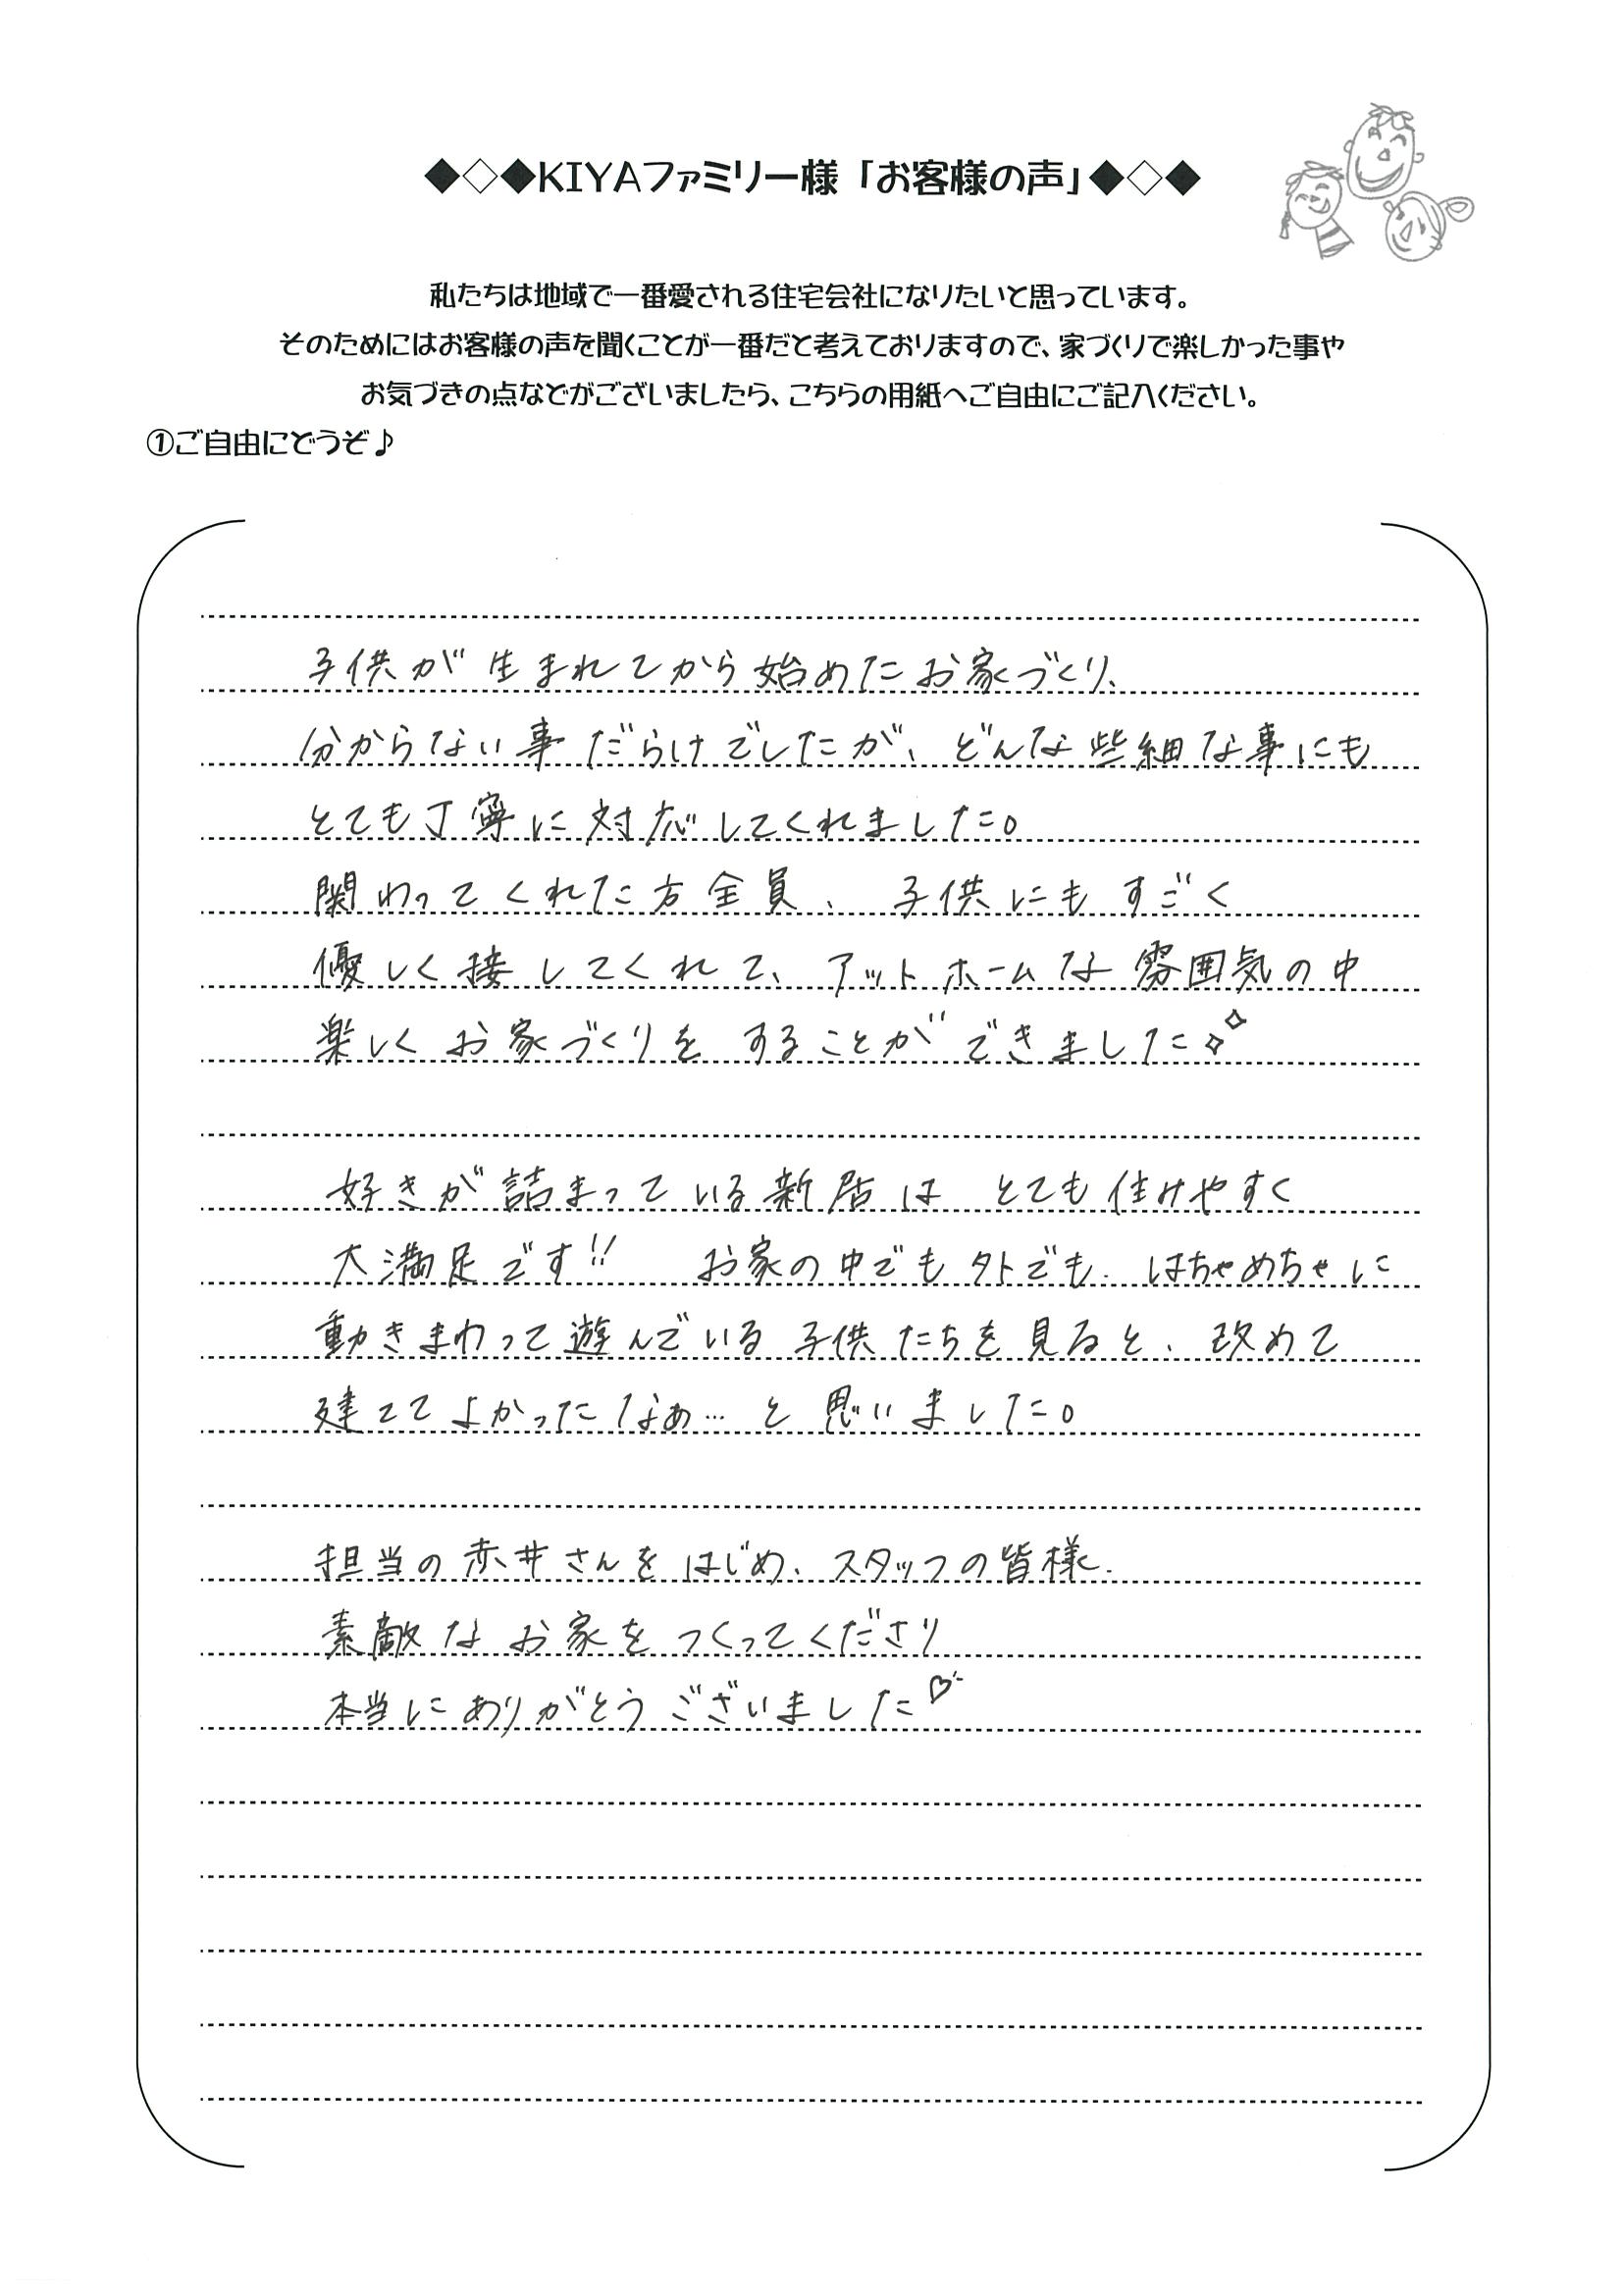 ◆◇◆KIYAファミリー様「お客様の声」◆◇◆
私たちは地域で一番愛される住宅会社になりたいと思っています。
そのためにはお客様の声を聞くことが一番だと考えておりますので、家づくりで楽しかった事や
お気づきの点などがございましたら、こちらの用紙へご自由にご記入ください。
①ご自由にどうぞ♪
子供が生まれてから始めたお家づくり、
分からない事だらけでしたが、どんな些細な事にも
とても丁寧に対応してくれました。
関わってくれた方全員、子供にもすごく
優しく接してくれて、アットホームな雰囲気の中
楽しくお家づくりをすることができました✧
好きが詰まっている新居はとても住みやすく
大満足です!! お家の中でも外でも、はちゃめちゃに
動きまわって遊んでいる子供たちを見ると、改めて
建ててよかったなぁ…と思いました。
担当の赤井さんをはじめ、スタッフの皆様、
素敵なお家をつくってくださり
本当にありがとうございました♡